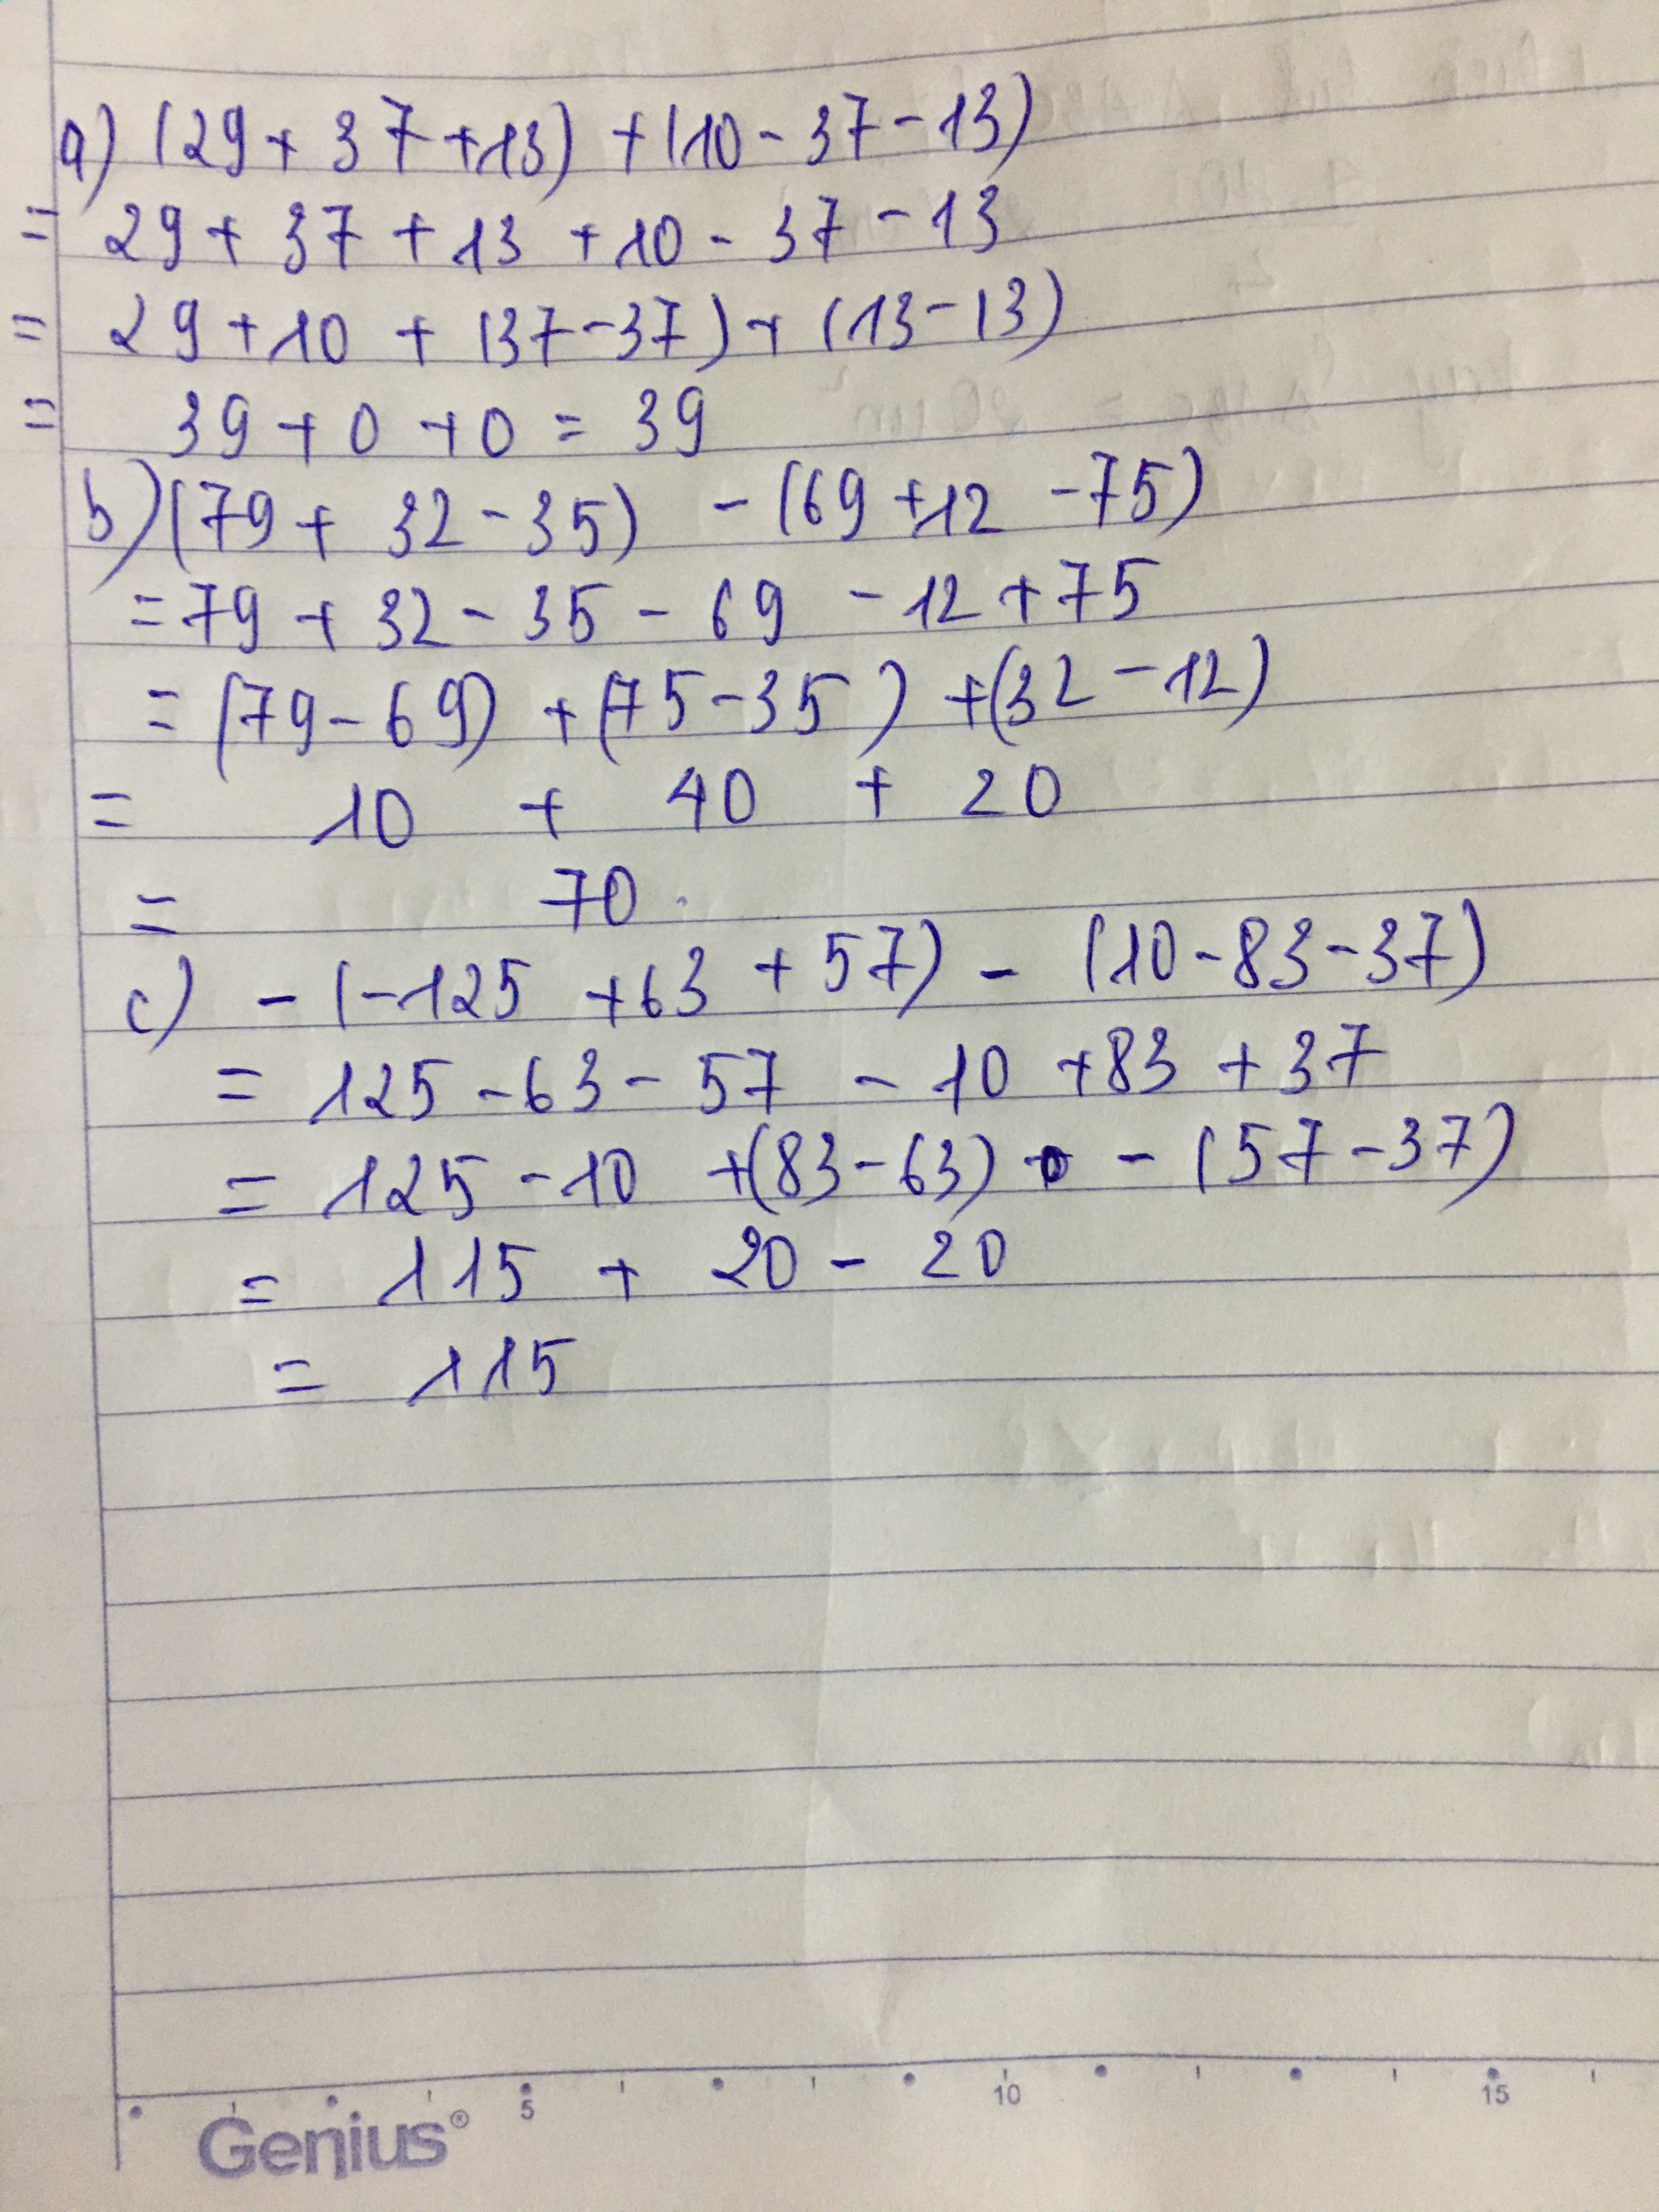 a) (29 + 37 + 13) + (10 - 37 - 13)
= 29 + 37 + 13 + 10 - 37 - 13
= 29 + 10 + (37 - 37) + (13 - 13)
= 39 + 0 + 0 = 39
b) (79 + 32 - 35) - (69 + 12 - 75)
= 79 + 32 - 35 - 69 - 12 + 75
= (79 - 69) + (75 - 35) + (32 - 12)
= 10 + 40 + 20
= 70.
c) - (-125 + 63 + 57) - (10 - 83 - 37)
= 125 - 63 - 57 - 10 + 83 + 37
= 125 - 10 + (83 - 63) - (57 - 37)
= 115 + 20 - 20
= 115
5 10 15
Genius®